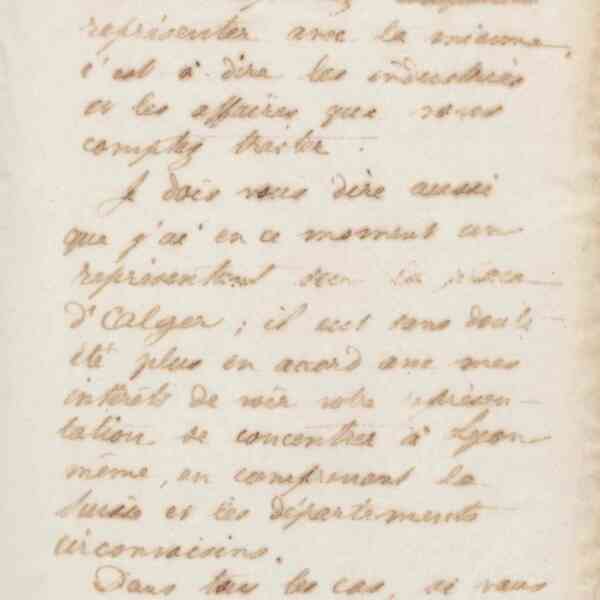 représenter avec la mienne,
c'est à dire les industries
et les affaires que vous
comptez traiter.
Je dois vous dire aussi
que j'ai en ce moment un
représentant sur la place
d'Alger ; il eut sans doute
été plus en accord avec mes
intérêts de voir votre représen-
tation se concentrer à Lyon
même, en comprenant la
Suisse et les départements
circonvoisins.
Dans tous les cas, si vous